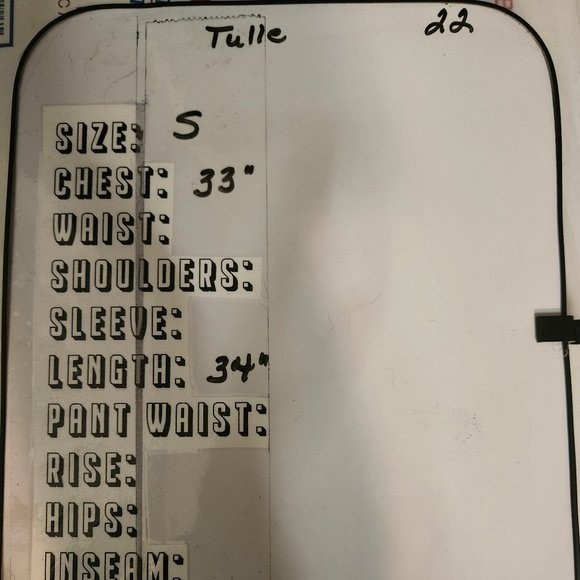 Tulle 22
SIZE: S
CHEST: 33"
WAIST:
SHOULDERS:
SLEEVE:
LENGTH: 34"
PANT WAIST:
RISE:
HIPS:
INSEAM: